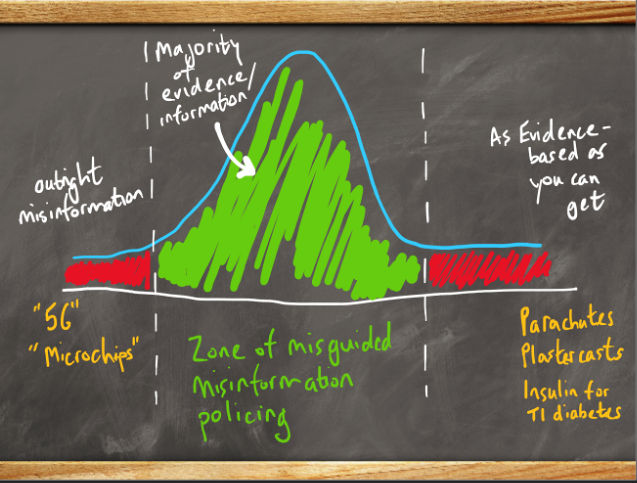 Majority
of
evidence/
information
outright
misinformation
As Evidence-
based as
you can
get
"5G"
"Microchips"
Zone of misguided
misinformation
policing
Parachutes
Plastercasts
Insulin for
T1 diabetes